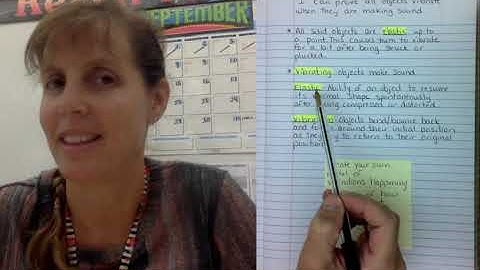 SEPTEMBER
I can prove all objects vibrate
when they are making sound.
* All solid objects are elastic up to
a point. This causes them to vibrate
for a bit after being struck or
plucked.
* Vibrating objects make sound.
Ability of an object to resume
its normal shape spontaneously
after being compressed or distorted.
objects bend/bounce back
and around their initial position
as they try to return to their original
position
your own
of
happening